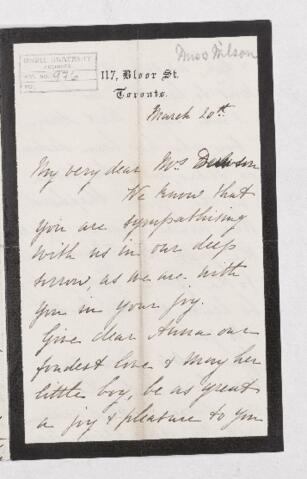 Miss Wilson
McGILL UNIVERSITY
ARCHIVES
ACC. NO. 976
REF.
117, Bloor St.
Toronto.
March 20th
My very dear Mrs Dawson
We know that
you are sympathising
with us in our deep
sorrow, as we are with
you in your joy.
Give dear Anna our
fondest love & may her
little boy, be as great
a joy & pleasure to you